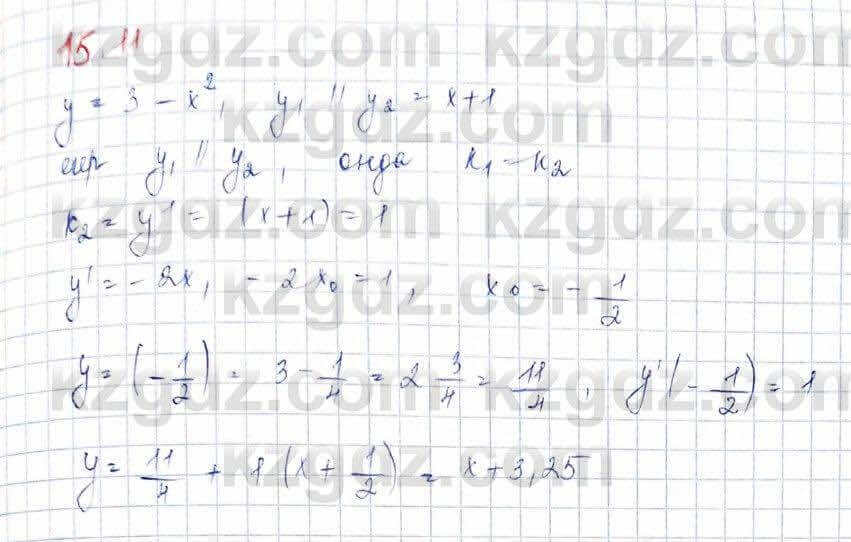 15.11
y = 3 - x², y₁ || y₂ = x+1
егер y₁ || y₂, онда к₁ - к₂
к₂ = y' = (x+1) = 1
y' = -2x, -2x₀ = 1, x₀ = -1/2
y = (-1/2) = 3 - 1/4 = 2 3/4 = 11/4, y'(-1/2) = 1
y = 11/4 + 1(x + 1/2) = x + 3,25
kzgdz.com kzgdz.com
kzgdz.com
kzgdz.com kzgdz.com
kzgdz.com
kzgdz.com kzgdz.com
kzgdz.com